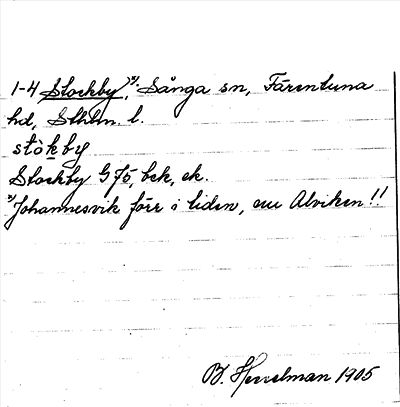 1-4 Stockby ˣ⁾: Sånga sn, Färentuna
hd, Sthlm. l.
stòkby
Stockby G 75, bek, ek.
ˣ⁾Johannesvik förr i tiden, nu Alviken!!
B. Hesselman 1905